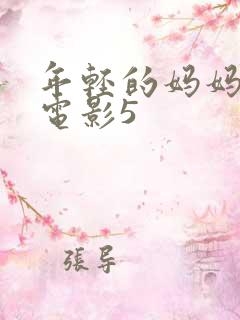 年轻的妈妈
電影5
張导